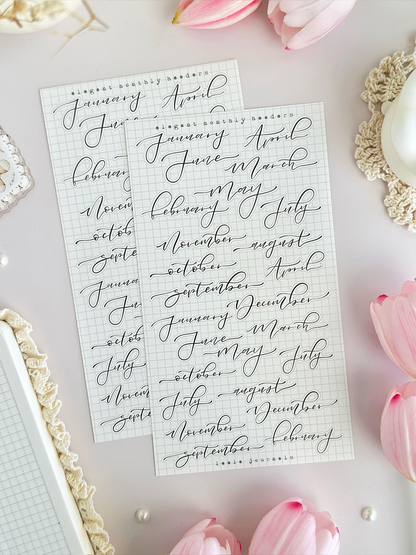 elegant monthly headers
January April
June
february
november
october
september
January
June
october
July
November
september
elegant monthly headers
January April
June March
May
february July
November august
october April
september December
January March
June May July
october
July august
November December
september february